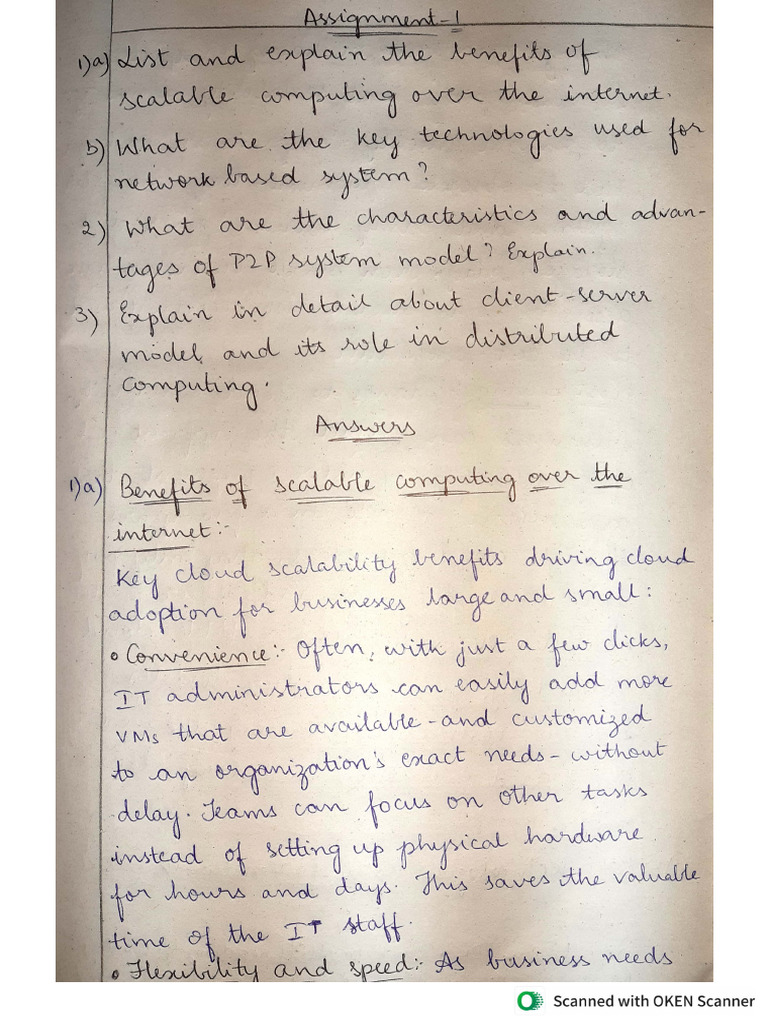 Assignment-1
1)a) List and explain the benefits of
scalable computing over the internet.
b) What are the key technologies used for
network based system?
2) What are the characteristics and advan-
tages of P2P system model? Explain.
3) Explain in detail about client-server
model, and its role in distributed
computing.
Answers
1)a) Benefits of scalable computing over the
internet:-
Key cloud scalability benefits driving cloud
adoption for businesses large and small:
• Convenience:- Often, with just a few clicks,
IT administrators can easily add more
VMs that are available-and customized
to an organization's exact needs-without
delay. Teams can focus on other tasks
instead of setting up physical hardware
for hours and days. This saves the valuable
time of the IT staff.
• Flexibility and speed:- As business needs
Scanned with OKEN Scanner